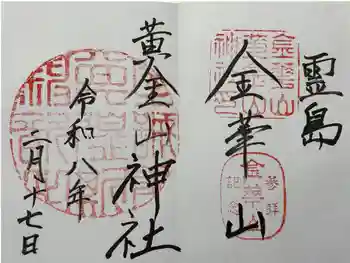 霊島
金華山
参拝
記念
黄金山神社
令和八年
二月十七日